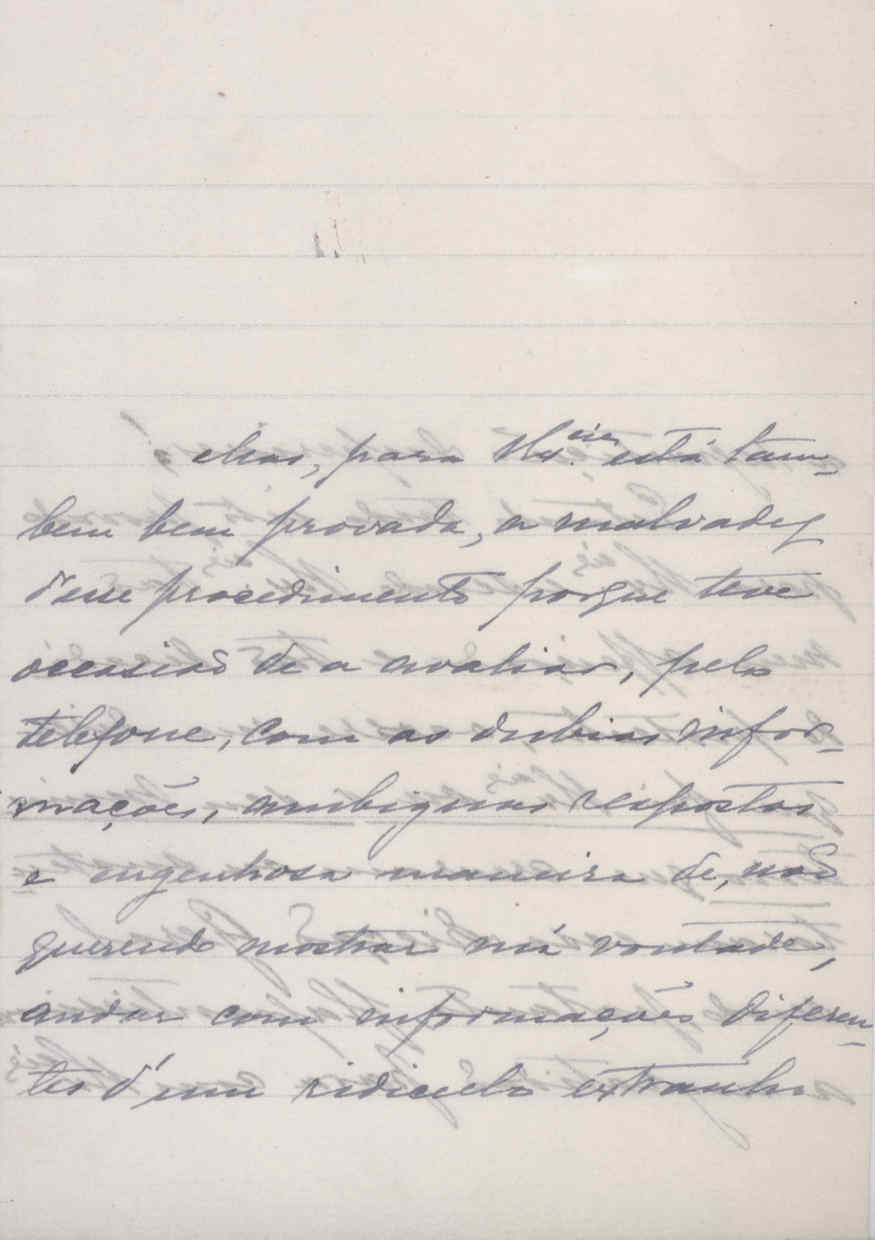 Mas, para V. Ex.cia está tam-
bem bem provada, a malvadez
d'esse procedimento porque teve
occasião de a avaliar, pelo
telefone, com as dubias infor-
mações, ambiguas respostas
e engenhosa maneira de, não
querendo mostrar má vontade,
andar com informações diferen-
tes d'um ridiculo extranho